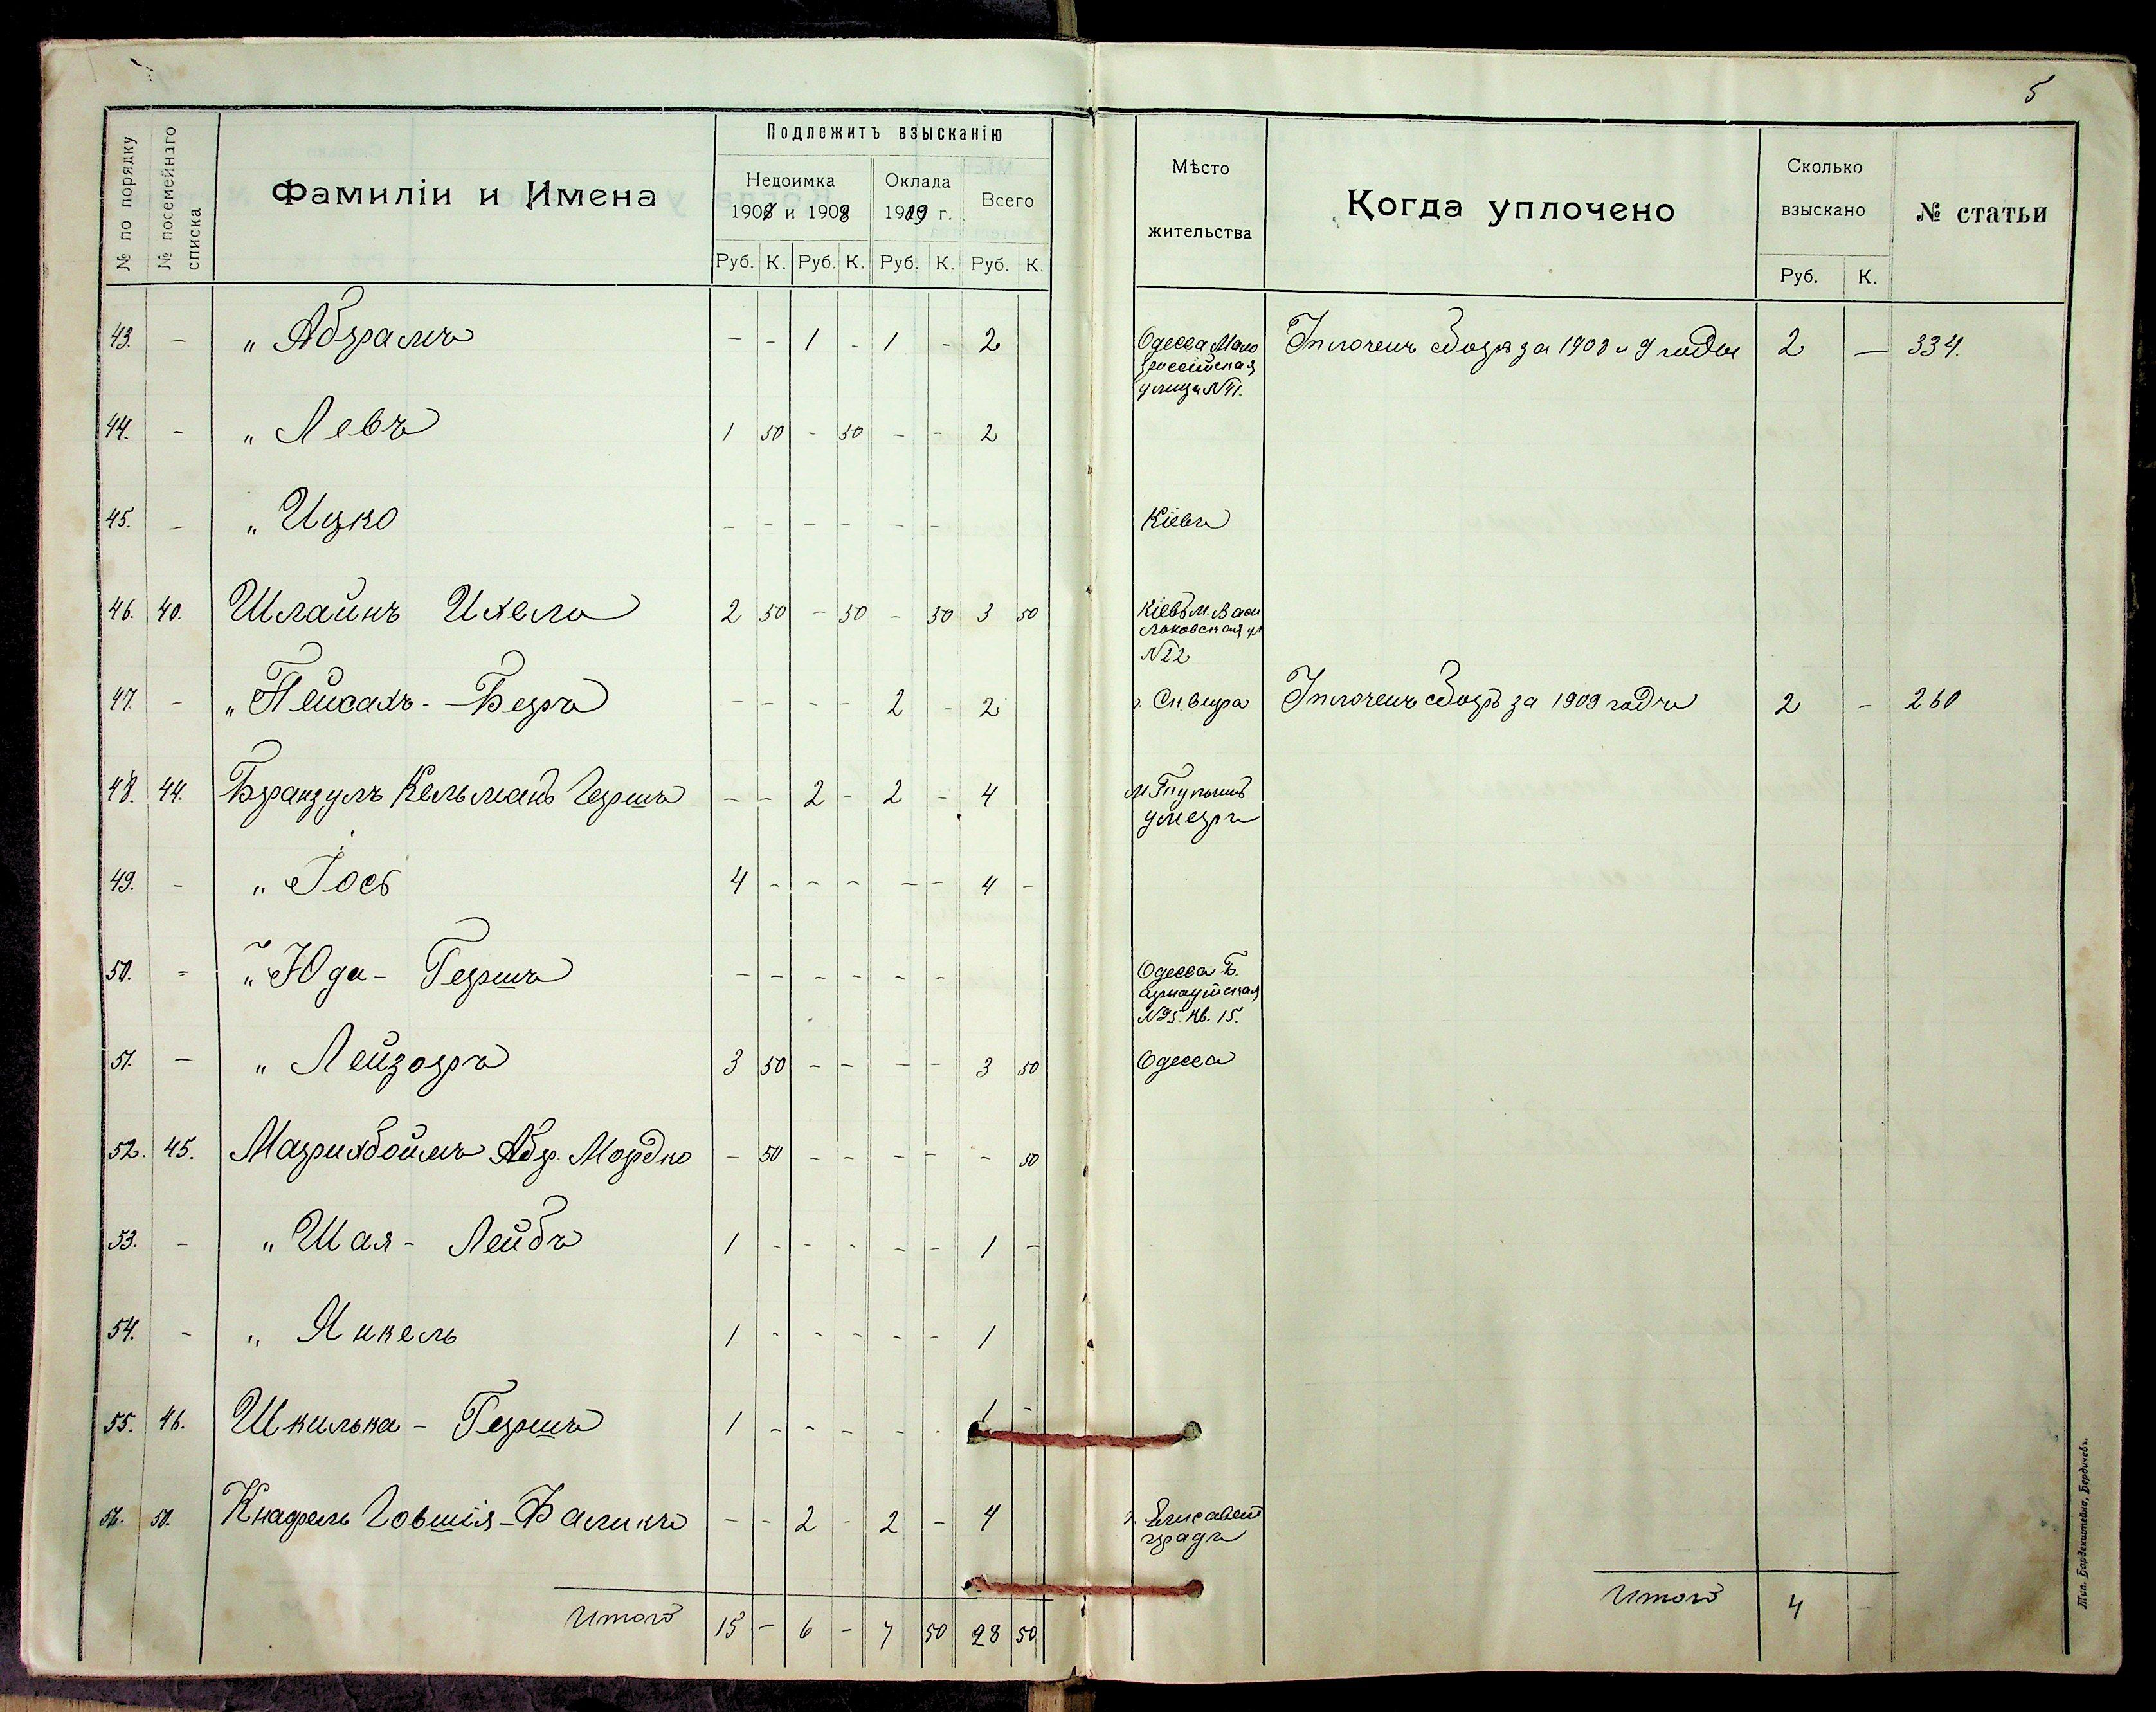 5
№ по порядку
№ посемейнаго списка
Фамиліи и Имена
Подлежитъ взысканію
Недоимка 1908 и 1908
Оклада 1909 г.
Всего
Руб. К. Руб. К. Руб. К. Руб. К.
Мѣсто жительства
Когда уплочено
Сколько взыскано
Руб. К.
№ статьи
43. - „ Абрамъ - - 1 - 1 - 2 Одесса Мало Уплоченъ сборъ за 1908 и 9 годы 2 — 334.
россійская
улица №41.
44. - „ Левъ 1 50 - 50 - - 2
45. - „ Ицко - - - - - - Кіевъ
46. 40. Шлаинъ Ихелъ 2 50 - 50 - 50 3 50 Кіевъ М. Васи
льковская ул
№22
47. - „ Пейсахъ - Беръ - - - - 2 - 2 г. Сквира Уплоченъ Сборъ за 1909 годъ 2 - 260
48. 44. Бранзулъ Кельманъ Гершъ - - 2 - 2 - 4
49. - „ Іось 4 - - - - - 4 -
50. - „ Юда - Гершъ - - - - - - Одесса Б.
Арнаутская
№95. кв. 15.
51. - „ Лейзоръ 3 50 - - - - 3 50 Одесса
52. 45. Марихбоймъ Абр. Мордко - 50 - - - - - 50
53. - „ Шая - Лейбъ 1 - - - - - 1 -
54. - „ Янкель 1 - - - - - 1
55. 46. Шкилька - Гершъ 1 - - - - - 1 -
56. 50. Кнафель Говшія - Фаликъ - - 2 - 2 - 4 г. Елисавет
градъ
Итого 15 - 6 - 7 50 28 50 Итого 4
Тип. Барденштейна, Бердичевъ.